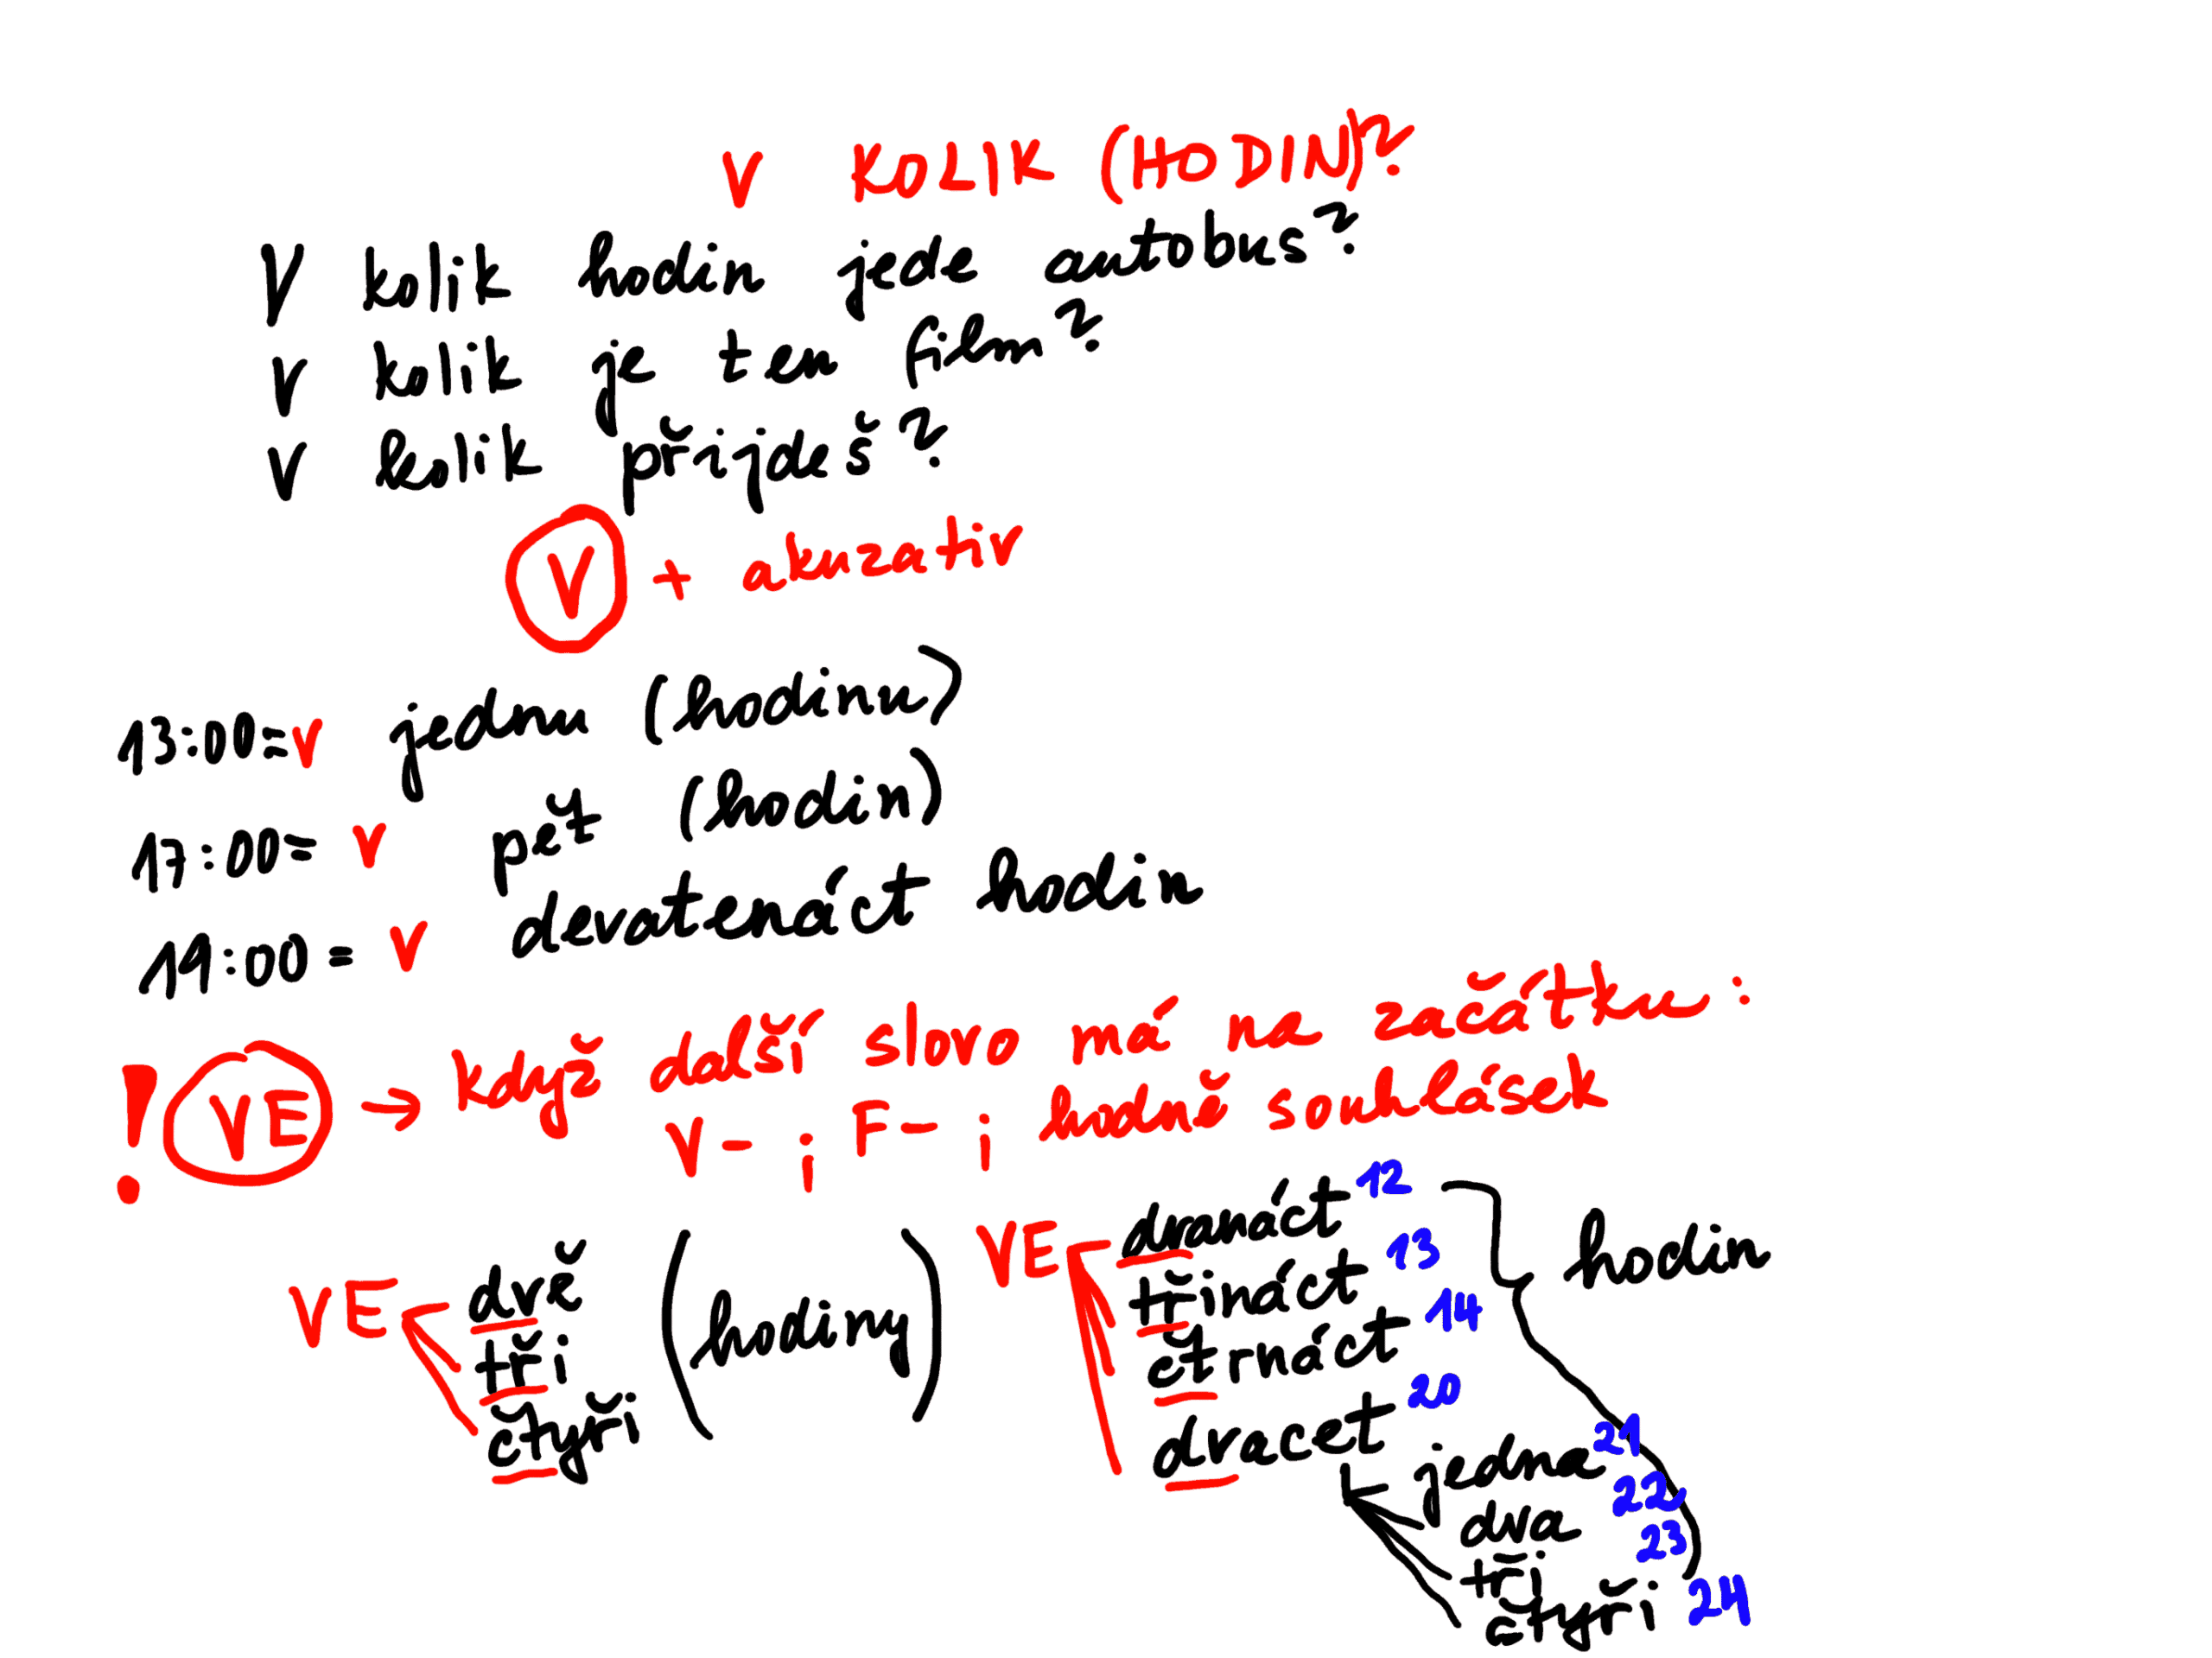 V KOLIK (HODIN)?
V kolik hodin jede autobus?
V kolik je ten film?
V kolik přijdeš?
V + akuzativ
13:00=v jednu (hodinu)
17:00= v pět (hodin)
19:00= v devatenáct hodin
! VE → když další slovo má na začátku:
V- ; F- ; hodně souhlásek
VE dvě (hodiny)
tři
čtyři
VE dvanáct 12 hodin
třináct 13
čtrnáct 14
dvacet 20
jedna 21
dva 22
tři 23
čtyři 24